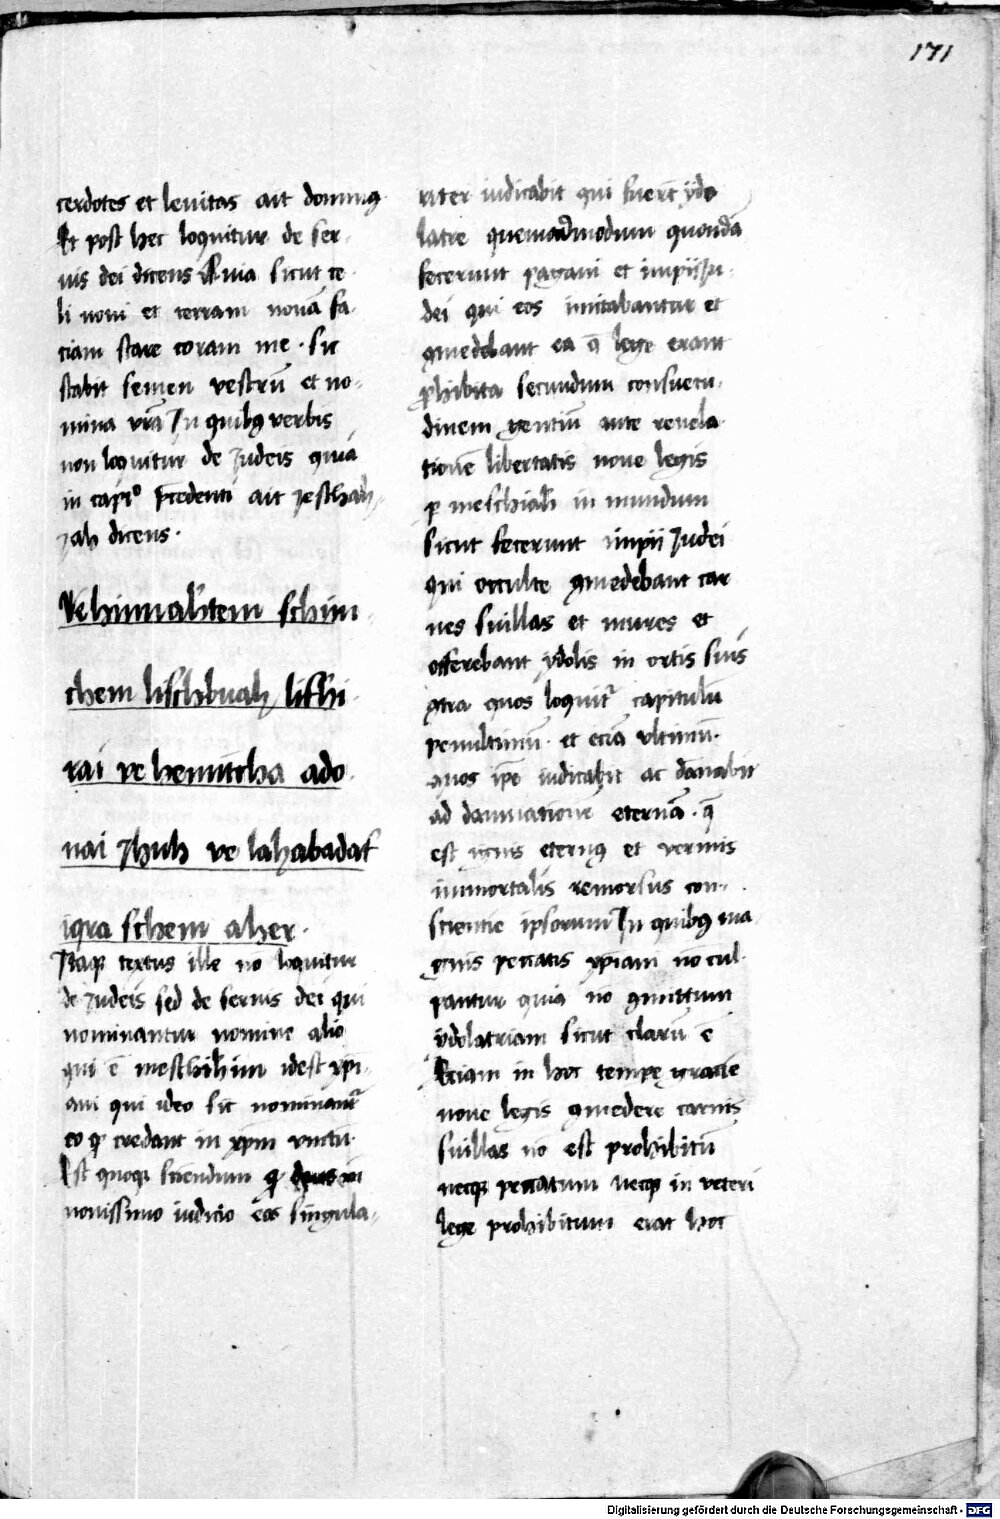 171
cerdotes et leuitas ait dominꝰ
Et post hec loquitur de ser-
uis dei dicens Quia sicut ce-
li noui et terram nouā fa-
ciam stare coram me · sic
stabit semen vestrū et no-
mina vr̄a In quibꝰ verbis
non loquitur de Judeis quia
in capi° p̄cedenti ait Jeschah-
Jah dicens ·
Vehinnahtem schim-
chem lischbuah lichi-
rai ve hemitcha ado-
nai Jhuh ve lahabadaf
iqra schem aher ·
Itaqꝫ textus ille nō loquitur
de Judeis sed de seruis dei qui
nominantur nomine alio
qui ē meschihim idest xp̄i-
ani qui ideo sic nominant᷑
eo ꝙ credant in xp̄m vnctū·
Est quoqꝫ sciendum ꝙ deus in
nouissimo iudicio eos singula-
riter iudicabit qui fuer̄t ydo
latre quemadmodum quondā
fecerunt pagani et impii Ju-
dei qui eos imitabantur et
ꝯmedebant ea q̄ lege erant
ꝓhibita secundum consuetu-
dinem gentiū ante reuela
tionē libertatis noue legis
ꝑ meschiah in mundum
sicut fecerunt impii Judei
qui occulte ꝯmedebant car
nes suillas et mures et
offerebant ydolis in ortis suis
ꝯtra quos loquit᷑ capitulū
penultimū· et eciā vltimū·
quos ip̄e iudicabit ac dānabit
ad damnationē eternā · q̄
est ignis eternꝰ et vermis
immortalis remorsus con-
scientie ipsorum In quibꝰ ma
gnis peccatis xp̄iani nō cul-
pantur quia nō ꝯmittunt
ydolatriam sicut clarū ē
Etiam in hoc tempe gracie
noue legis ꝯmedere carnis
suillas nō est prohibitū
necqꝫ peccatum necqꝫ in veteri
lege prohibitum erat hoc
Digitalisierung gefördert durch die Deutsche Forschungsgemeinschaft - DFG